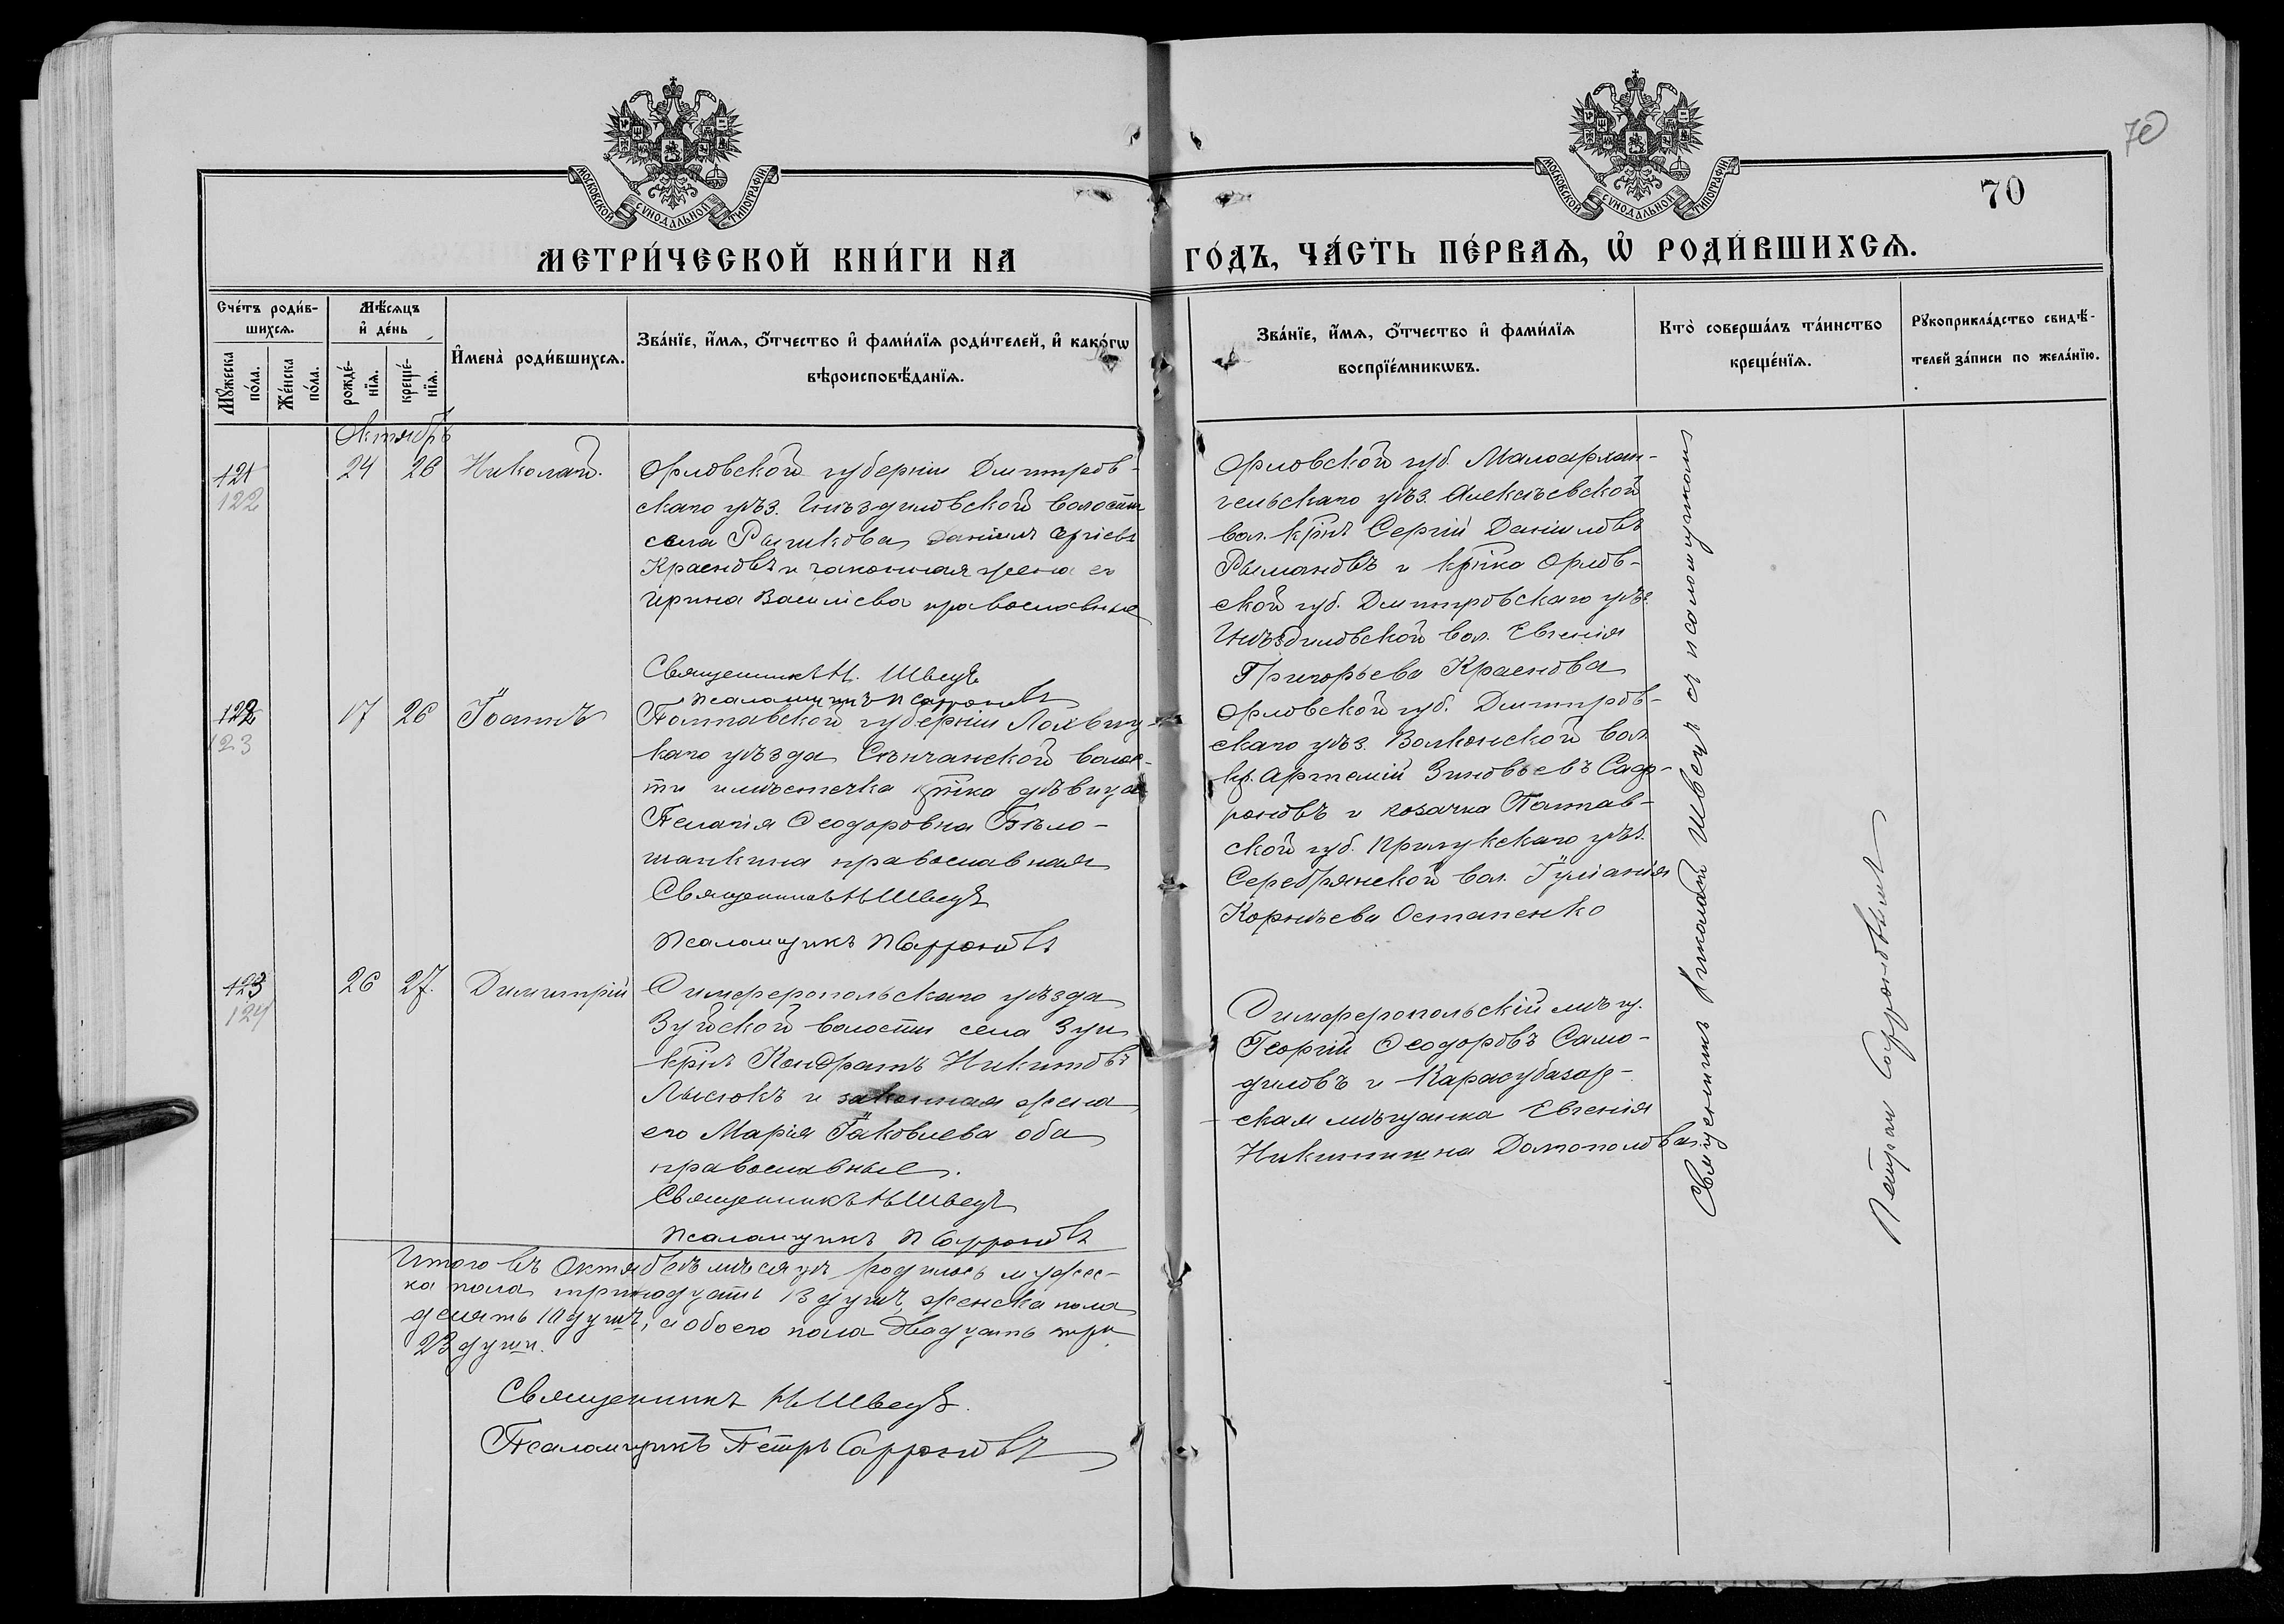 70
МОСКОВСКОЙ СѴНОДАЛЬНОЙ ТИПОГРАФІИ
МОСКОВСКОЙ СѴНОДАЛЬНОЙ ТИПОГРАФІИ
70
МЕТРИ́ЧЕСКОЙ КНИ́ГИ НА
ГО́ДЪ, ЧА́СТЬ ПЕ́РВАѦ, Ѡ҆ РОДИ́ВШИХСѦ.
Сче́тъ роди́в-
шихсѧ.
Мꙋ́жеска
по́ла.
Же́нска
по́ла.
Мѣ́сѧцъ
и҆ де́нь
рожде́-
нїѧ.
креще́-
нїѧ.
И҆мена̀ роди́вшихсѧ.
Зва́нїе, и҆́мѧ, ѻ҆́тчество и҆ фами́лїѧ роди́телей, и҆ како́гѡ
вѣроисповѣ́данїѧ.
Зва́нїе, и҆́мѧ, ѻ҆́тчество и҆ фами́лїѧ
воспрїе́мникѡвъ.
Кто̀ соверша́лъ та́инство
креще́нїѧ.
Рꙋкоприкла́дство свидѣ́-
телей за́писи по жела́нїю.
Октябрь
121
122
24 26 Николай.
Орловской губерніи Дмитров-
скаго уѣз. Гнѣздиловской волости
села Рышкова Даніилъ Сергіевъ
Красновъ и законная жена его
Ирина Василіева православные
Священникъ Н. Швецъ
Псаломщикъ П Сафроновъ
Орловской губ. Малоархан-
гельскаго уѣз. Алексѣевской
вол. крнъ Сергій Даніиловъ
и крнка Орлов-
ской губ. Дмитровскаго уѣз.
Гнѣздиловской вол. Евгенія
Григорьева Краснова
122
123
17 26 Іоаннъ
Полтавской губерніи Лохвиц-
каго уѣзда Сѣнчанской волос-
ти и мѣстечка дѣвица
Пелагія Ѳеодоровна Бѣло-
шапкина православная
Священникъ Н Швецъ
Псаломщикъ П Сафроновъ
Орловской губ. Дмитров-
скаго уѣз. Волконской вол.
кр. Артемій Зиновьевъ Саф-
роновъ и козачка Полтав-
ской губ. Прилукскаго уѣз.
Серебрянской вол. Іуліанія
Корнѣева Остапенко
123
124
26 27. Димитрій
Симферопольскаго уѣзда
Зуйской волости села Зуи
крнъ Кондратъ Никитовъ
Лысюкъ и законная жена
его Марія Іаковлева оба
православные.
Священникъ Н Швецъ
Псаломщикъ П Сафроновъ
Симферопольскій мѣщ.
Георгій Ѳеодоровъ Само-
диловъ и Карасубазар-
ская мѣщанка Евгенія
Никитишна Домополова
Священникъ Николай Швецъ съ псаломщикомъ
Петромъ Сафроновымъ
Итого въ Октябрѣ мѣсяцѣ родилось мужес-
ка пола тринадцать 13 душъ, женска пола
десять 10 душъ, а обоего пола двадцать три
23 души.
Священникъ Н Швецъ.
Псаломщикъ Петръ Сафроновъ